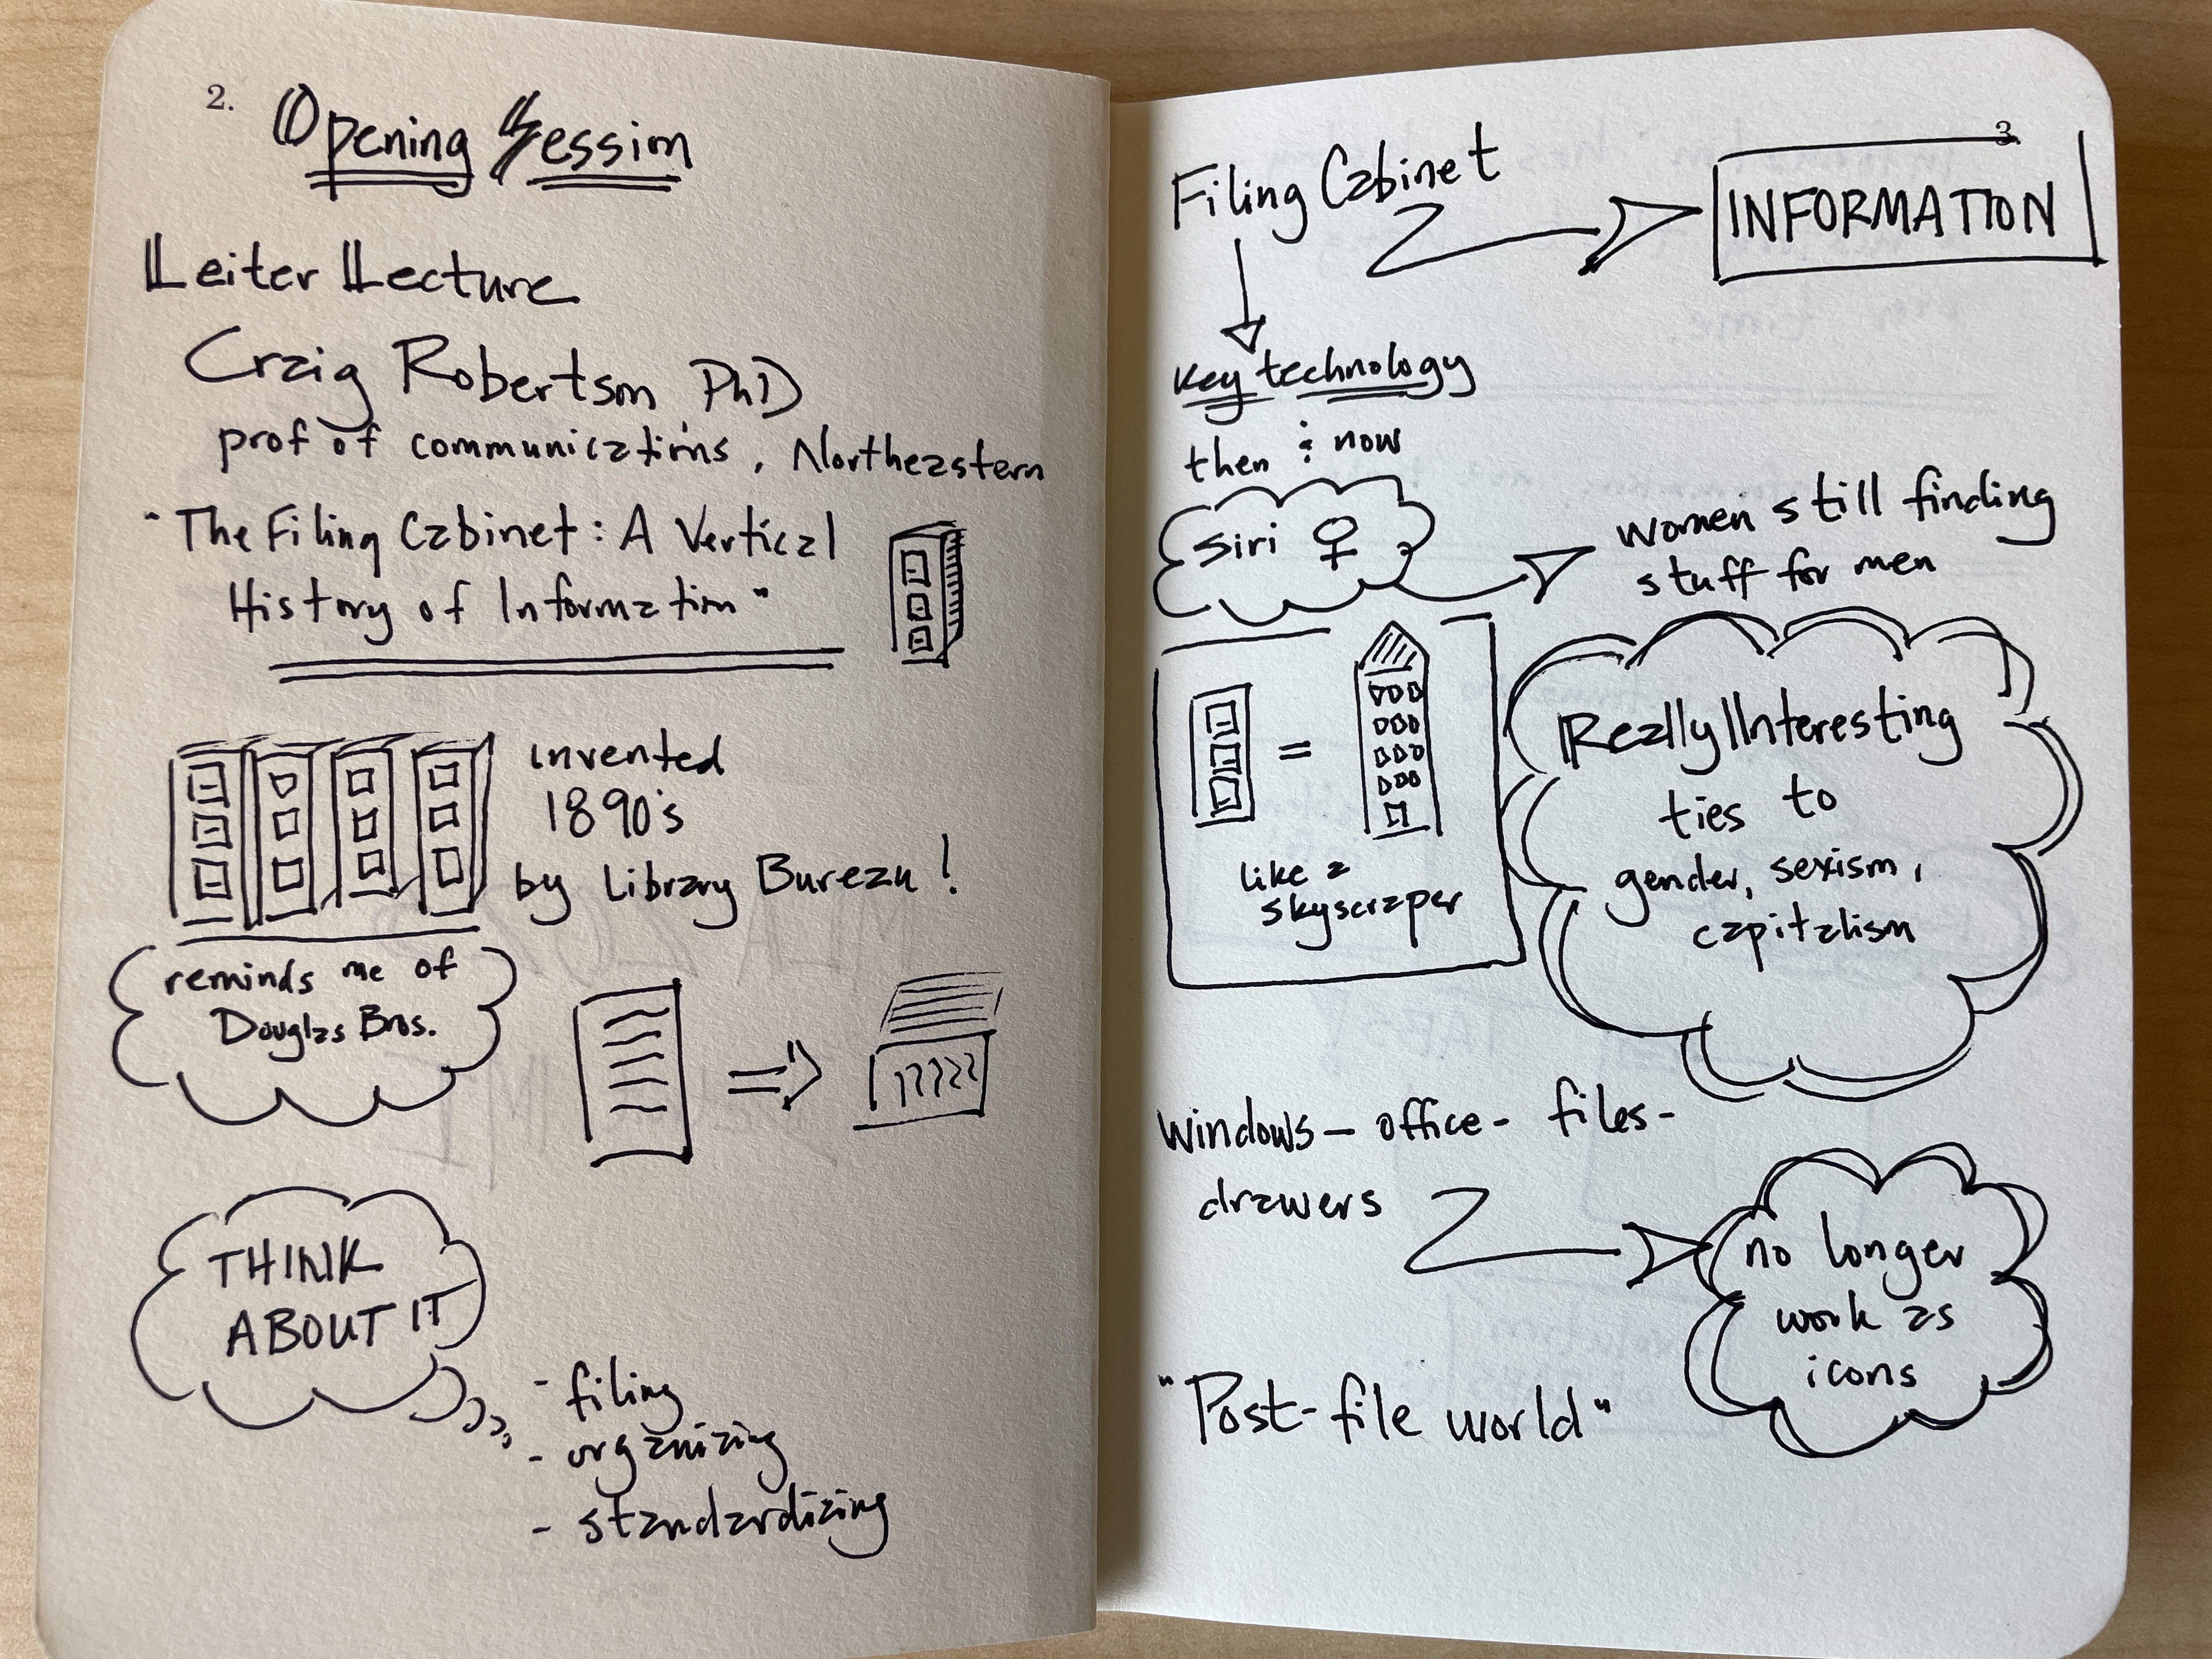 2.
Opening Session
Leiter Lecture
Craig Robertson PhD
prof of communications, Northeastern
"The Filing Cabinet: A Vertical
History of Information"
invented
1890's
by Library Bureau!
reminds me of
Douglas Bros.
THINK
ABOUT IT
- filing
- organizing
- standardizing
3
Filing Cabinet
INFORMATION
key technology
then & now
Siri ♀
women still finding
stuff for men
=
like a
skyscraper
Really Interesting
ties to
gender, sexism,
capitalism
windows - office - files -
drawers
no longer
work as
icons
"Post-file world"